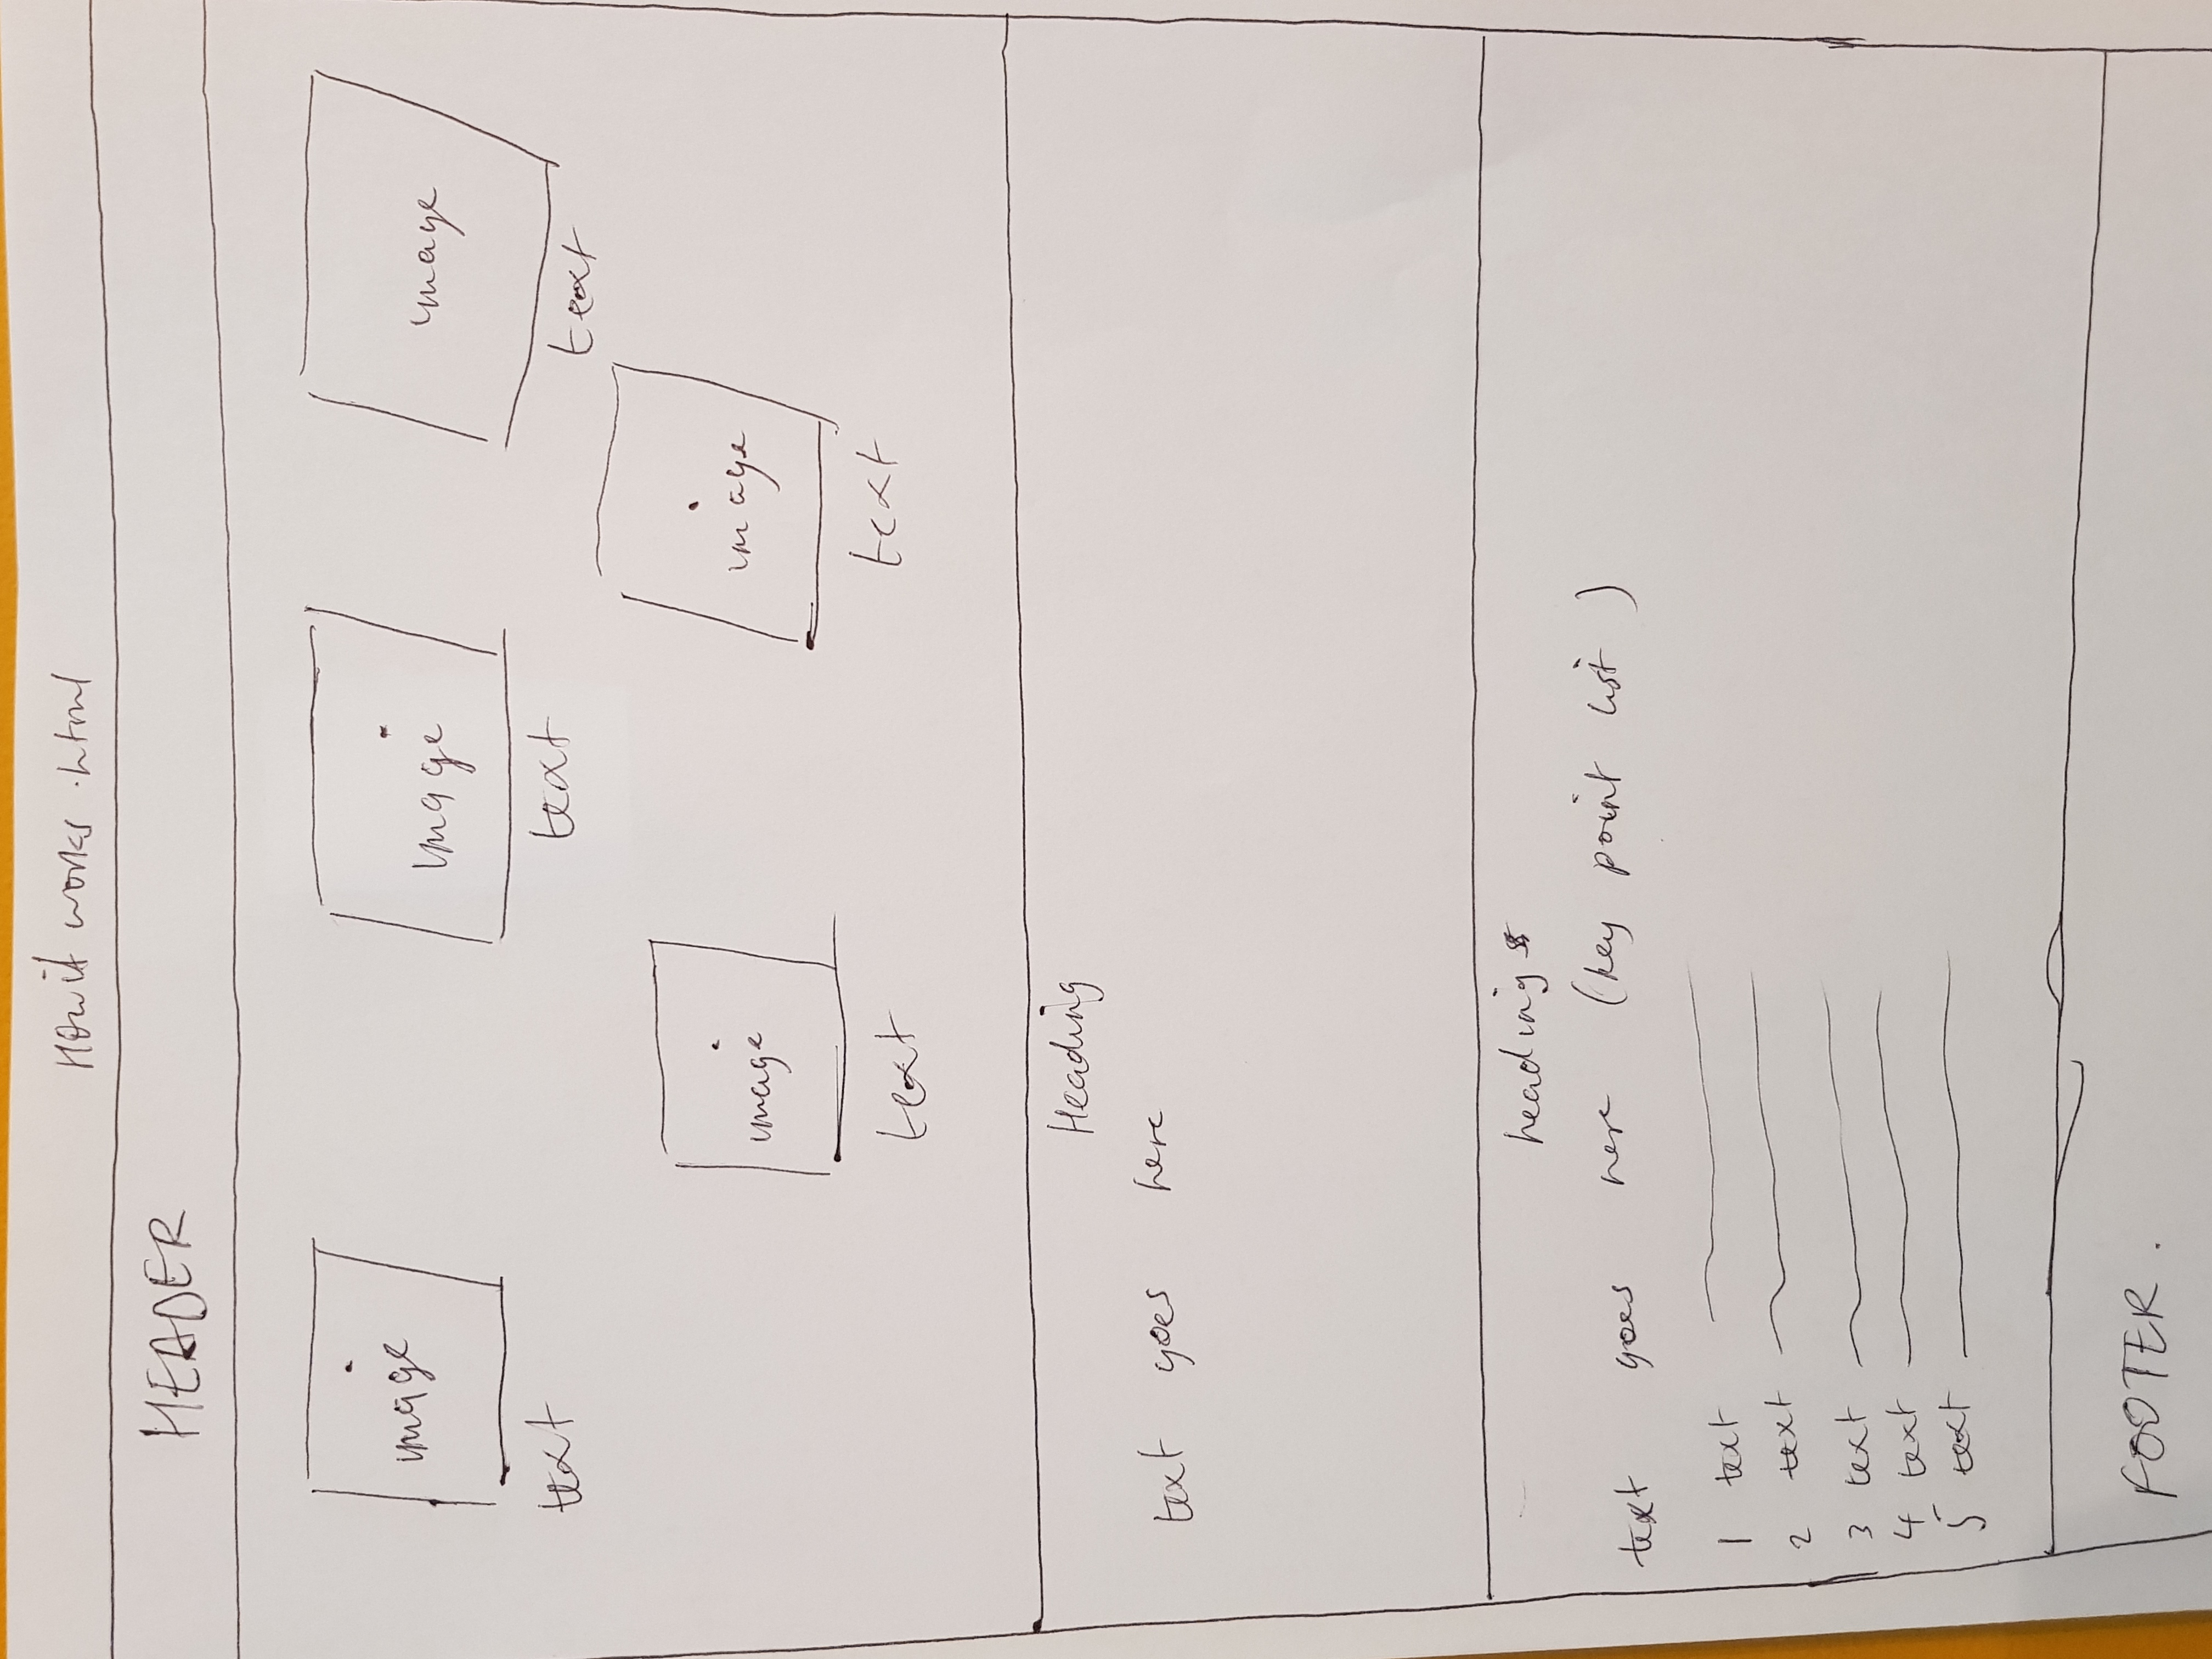 How it works .html
HEADER
image
image
image
text
text
text
image
image
text
text
Heading
text goes here
headings
text goes here (key point list)
1 text
2 text
3 text
4 text
5 text
FOOTER.